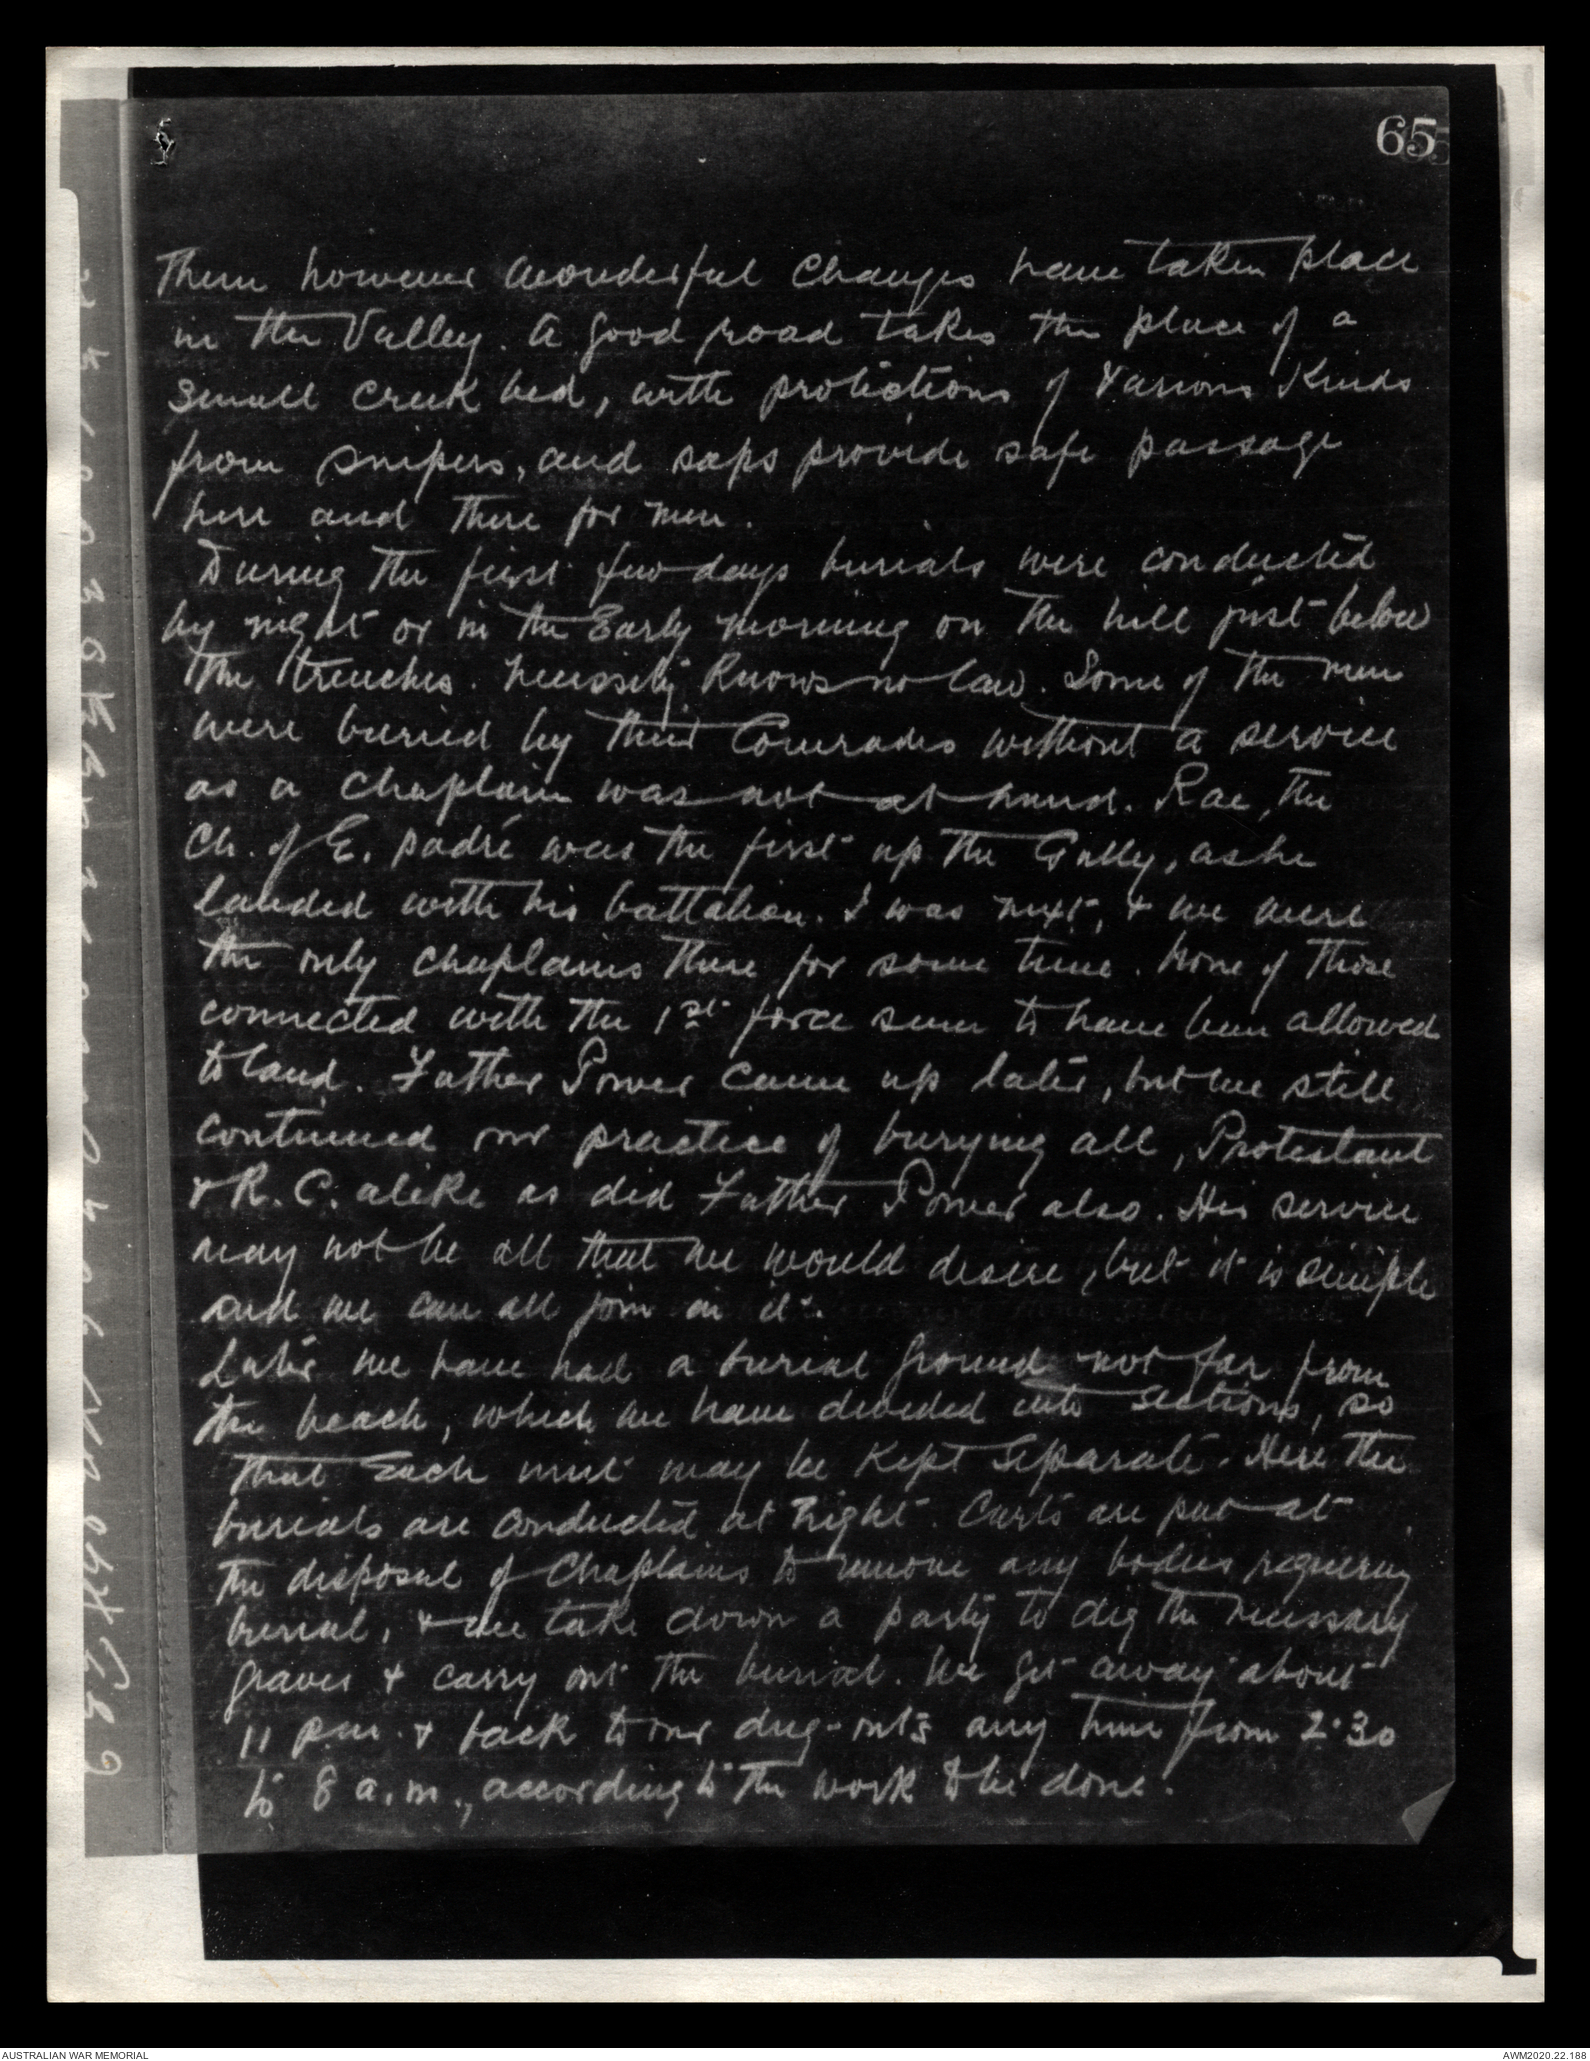 65
Then however wonderful changes have taken place
in the Valley. A good road takes the place of a
small creek bed, with protections of various kinds
from snipers, and saps provide safe passage
here and there for men.
During the first few days burials were conducted
by night or in the Early morning on the hill just below
the trenches. Necessity knows no law. Some of the men
were buried by their Comrades without a service
as a Chaplain was not at hand. Rae, the
Ch. of E. padré was the first up the Gully, as he
landed with his battalion. I was next, & we were
the only chaplains there for some time. None of those
connected with the 1st force seem to have been allowed
to land. Father Power came up later, but we still
continued our practice of burying all, Protestant
& R.C. alike as did Father Power also. His service
may not be all that we would desire, but it is simple
and we can all join in it.
Later we have had a burial ground not far from
the beach, which we have divided into sections, so
that Each unit may be Kept Separate. Here the
burials are conducted at night. Carts are put at
the disposal of Chaplains to remove any bodies requiring
burial, & we take down a party to dig the necessary
graves & carry out the burial. We get away about
11 p.m. & back to our dug-outs any time from 2.30
to 8 a.m., according to the work to be done.
AUSTRALIAN WAR MEMORIAL
AWM2020.22.188